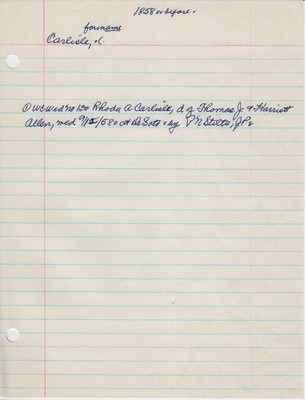 1858 or before.
forename
Carlisle, .
① Wed no 150 Rhoda A Carlisle, d of Thomas J & Harriett
Allen, med 9/15/58 at DeSoto by P N States, JP